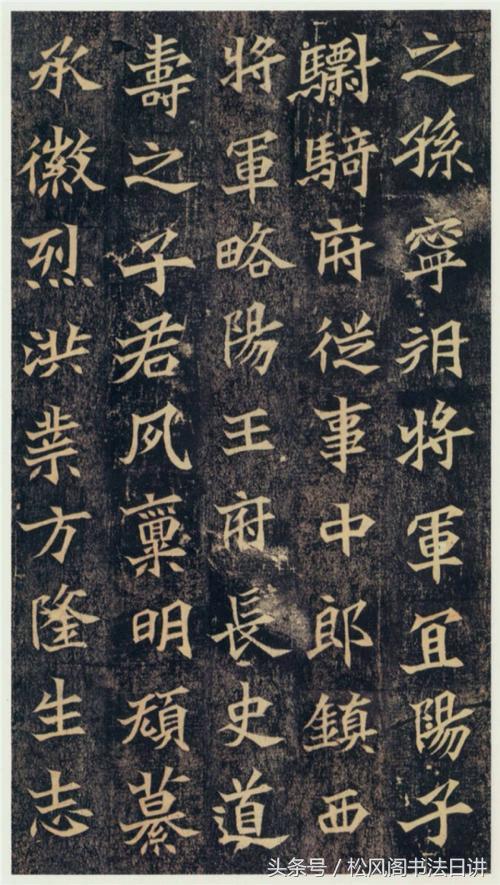 之孫寧朔將軍冝陽子
驃騎府從事中郎鎮西
將軍略陽王府長史道
壽之子君夙稟明
承徽烈洪業方隆生志
头条号／松风阁书法日讲